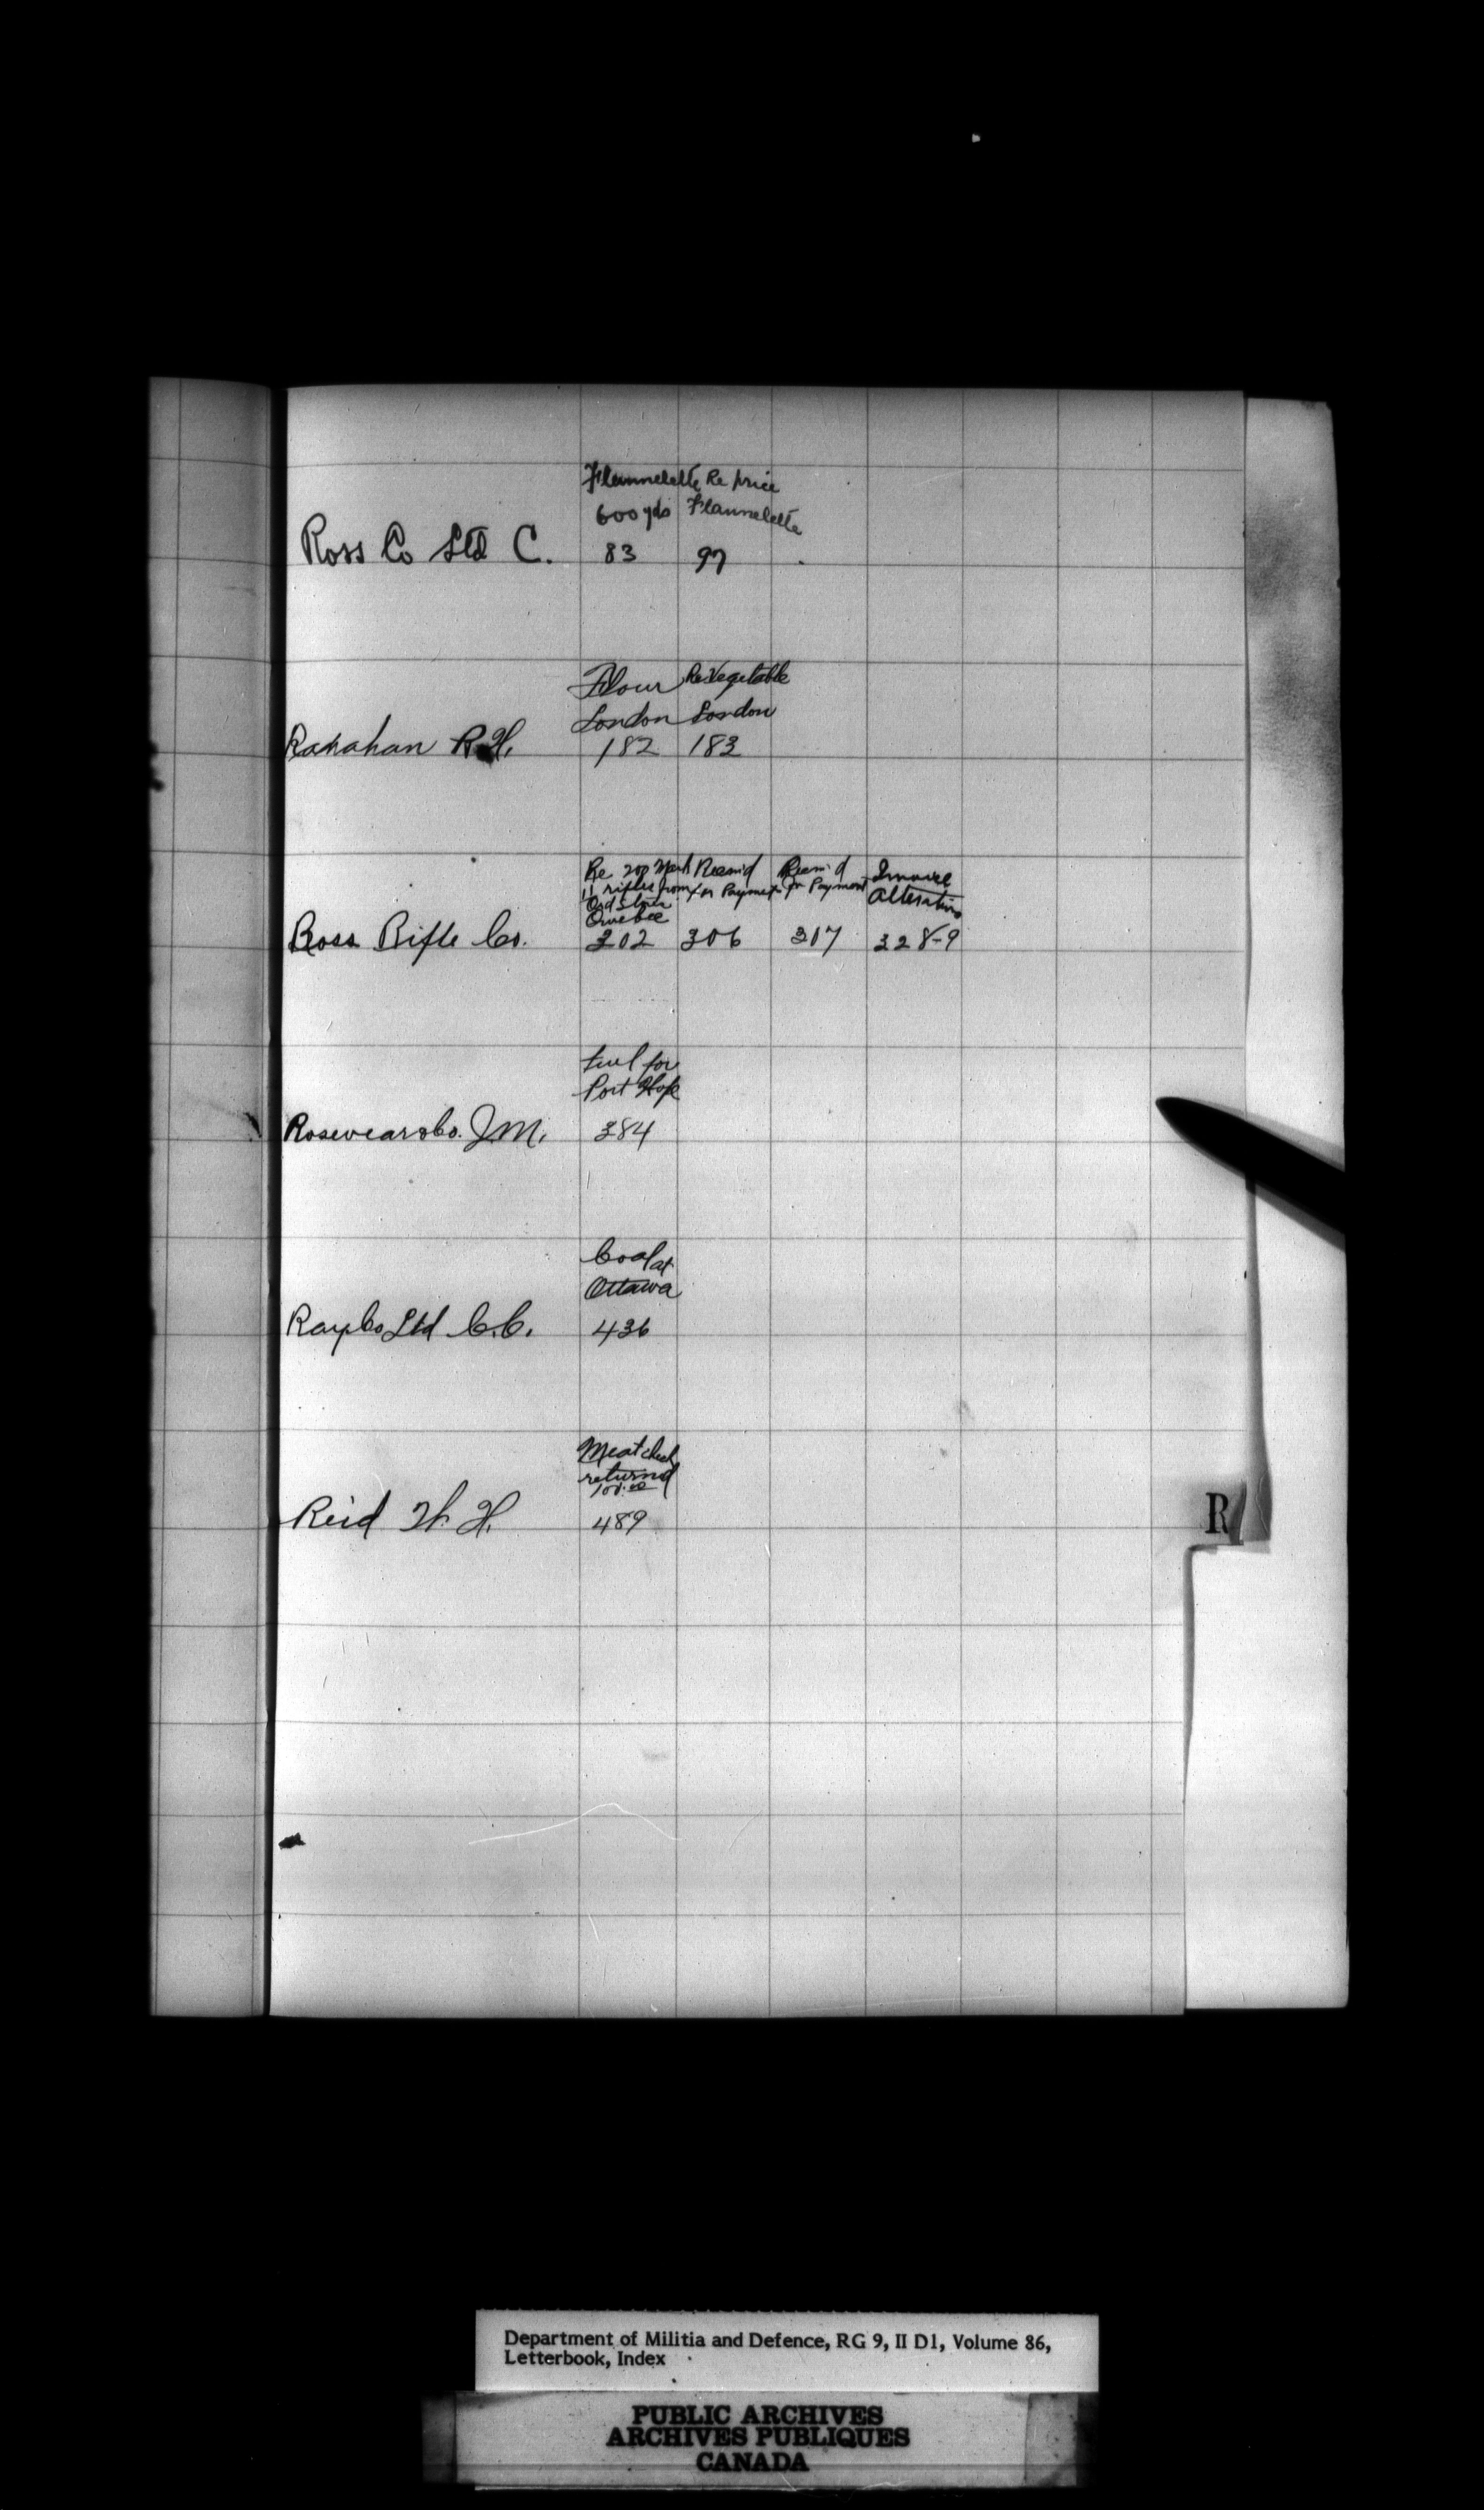 Flannelette Re price
600 yds Flannelette
Ross Co Ltd C. 83 97
Flour Re Vegetable
London London
Ranahan R.H. 182 183
Re 200 Mark Recm'd Recm'd Invoice
11 rifles from for Payment for Payment Alteration
Ord Stores
Quebec
Ross Rifle Co. 302 306 317 328-9
Fuel for
Port Hope
Rosevear & Co. J.M. 384
Coal at
Ottawa
Ray Co Ltd C.C. 436
Meat check
returned
100.00
Reid W. H. 489
R
Department of Militia and Defence, RG 9, II D1, Volume 86,
Letterbook, Index
PUBLIC ARCHIVES
ARCHIVES PUBLIQUES
CANADA